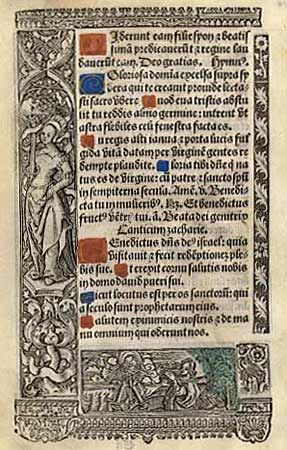 Uiderunt eam filie syon ⁊ beatis
simā predicauerūt ⁊ regine lau
dauerūt eam. Deo gratias. Hymn⁹.
O Gloriosa domīa excelsa supra sy
dera qui te creauit prouide lacta
sti sacro vbere Quod eua tristis abstu
lit tu reddis almo germine: intrent vt
astra flebiles celi fenestra facta es.
Tu regis alti ianua ⁊ porta lucis ful
gida vitā datam per virginē gentes re
dempte plaudite. Gloria tibi dn̄e q̄ na
tus es de virgine cū patre ⁊ sancto spū
in sempiterna secula. Amē. v. Benedi
cta tu in mulierib⁹. Rx. Et benedictus
fruct⁹ vētr̄ tui. ā. Beata dei genitrix
Canticum zacharie.
Benedictus dn̄s de⁹ israel: quia
visitauit ⁊ fecit redēptionē ple
bis sue. Et erexit cornu salutis nobis
in domo dauid pueri sui.
Sicut locutus est per os sanctorū: qui
a seculo sunt prophetarum eius.
Salutem ex inimicis nostris ⁊ de ma
nu omnium qui oderunt nos.